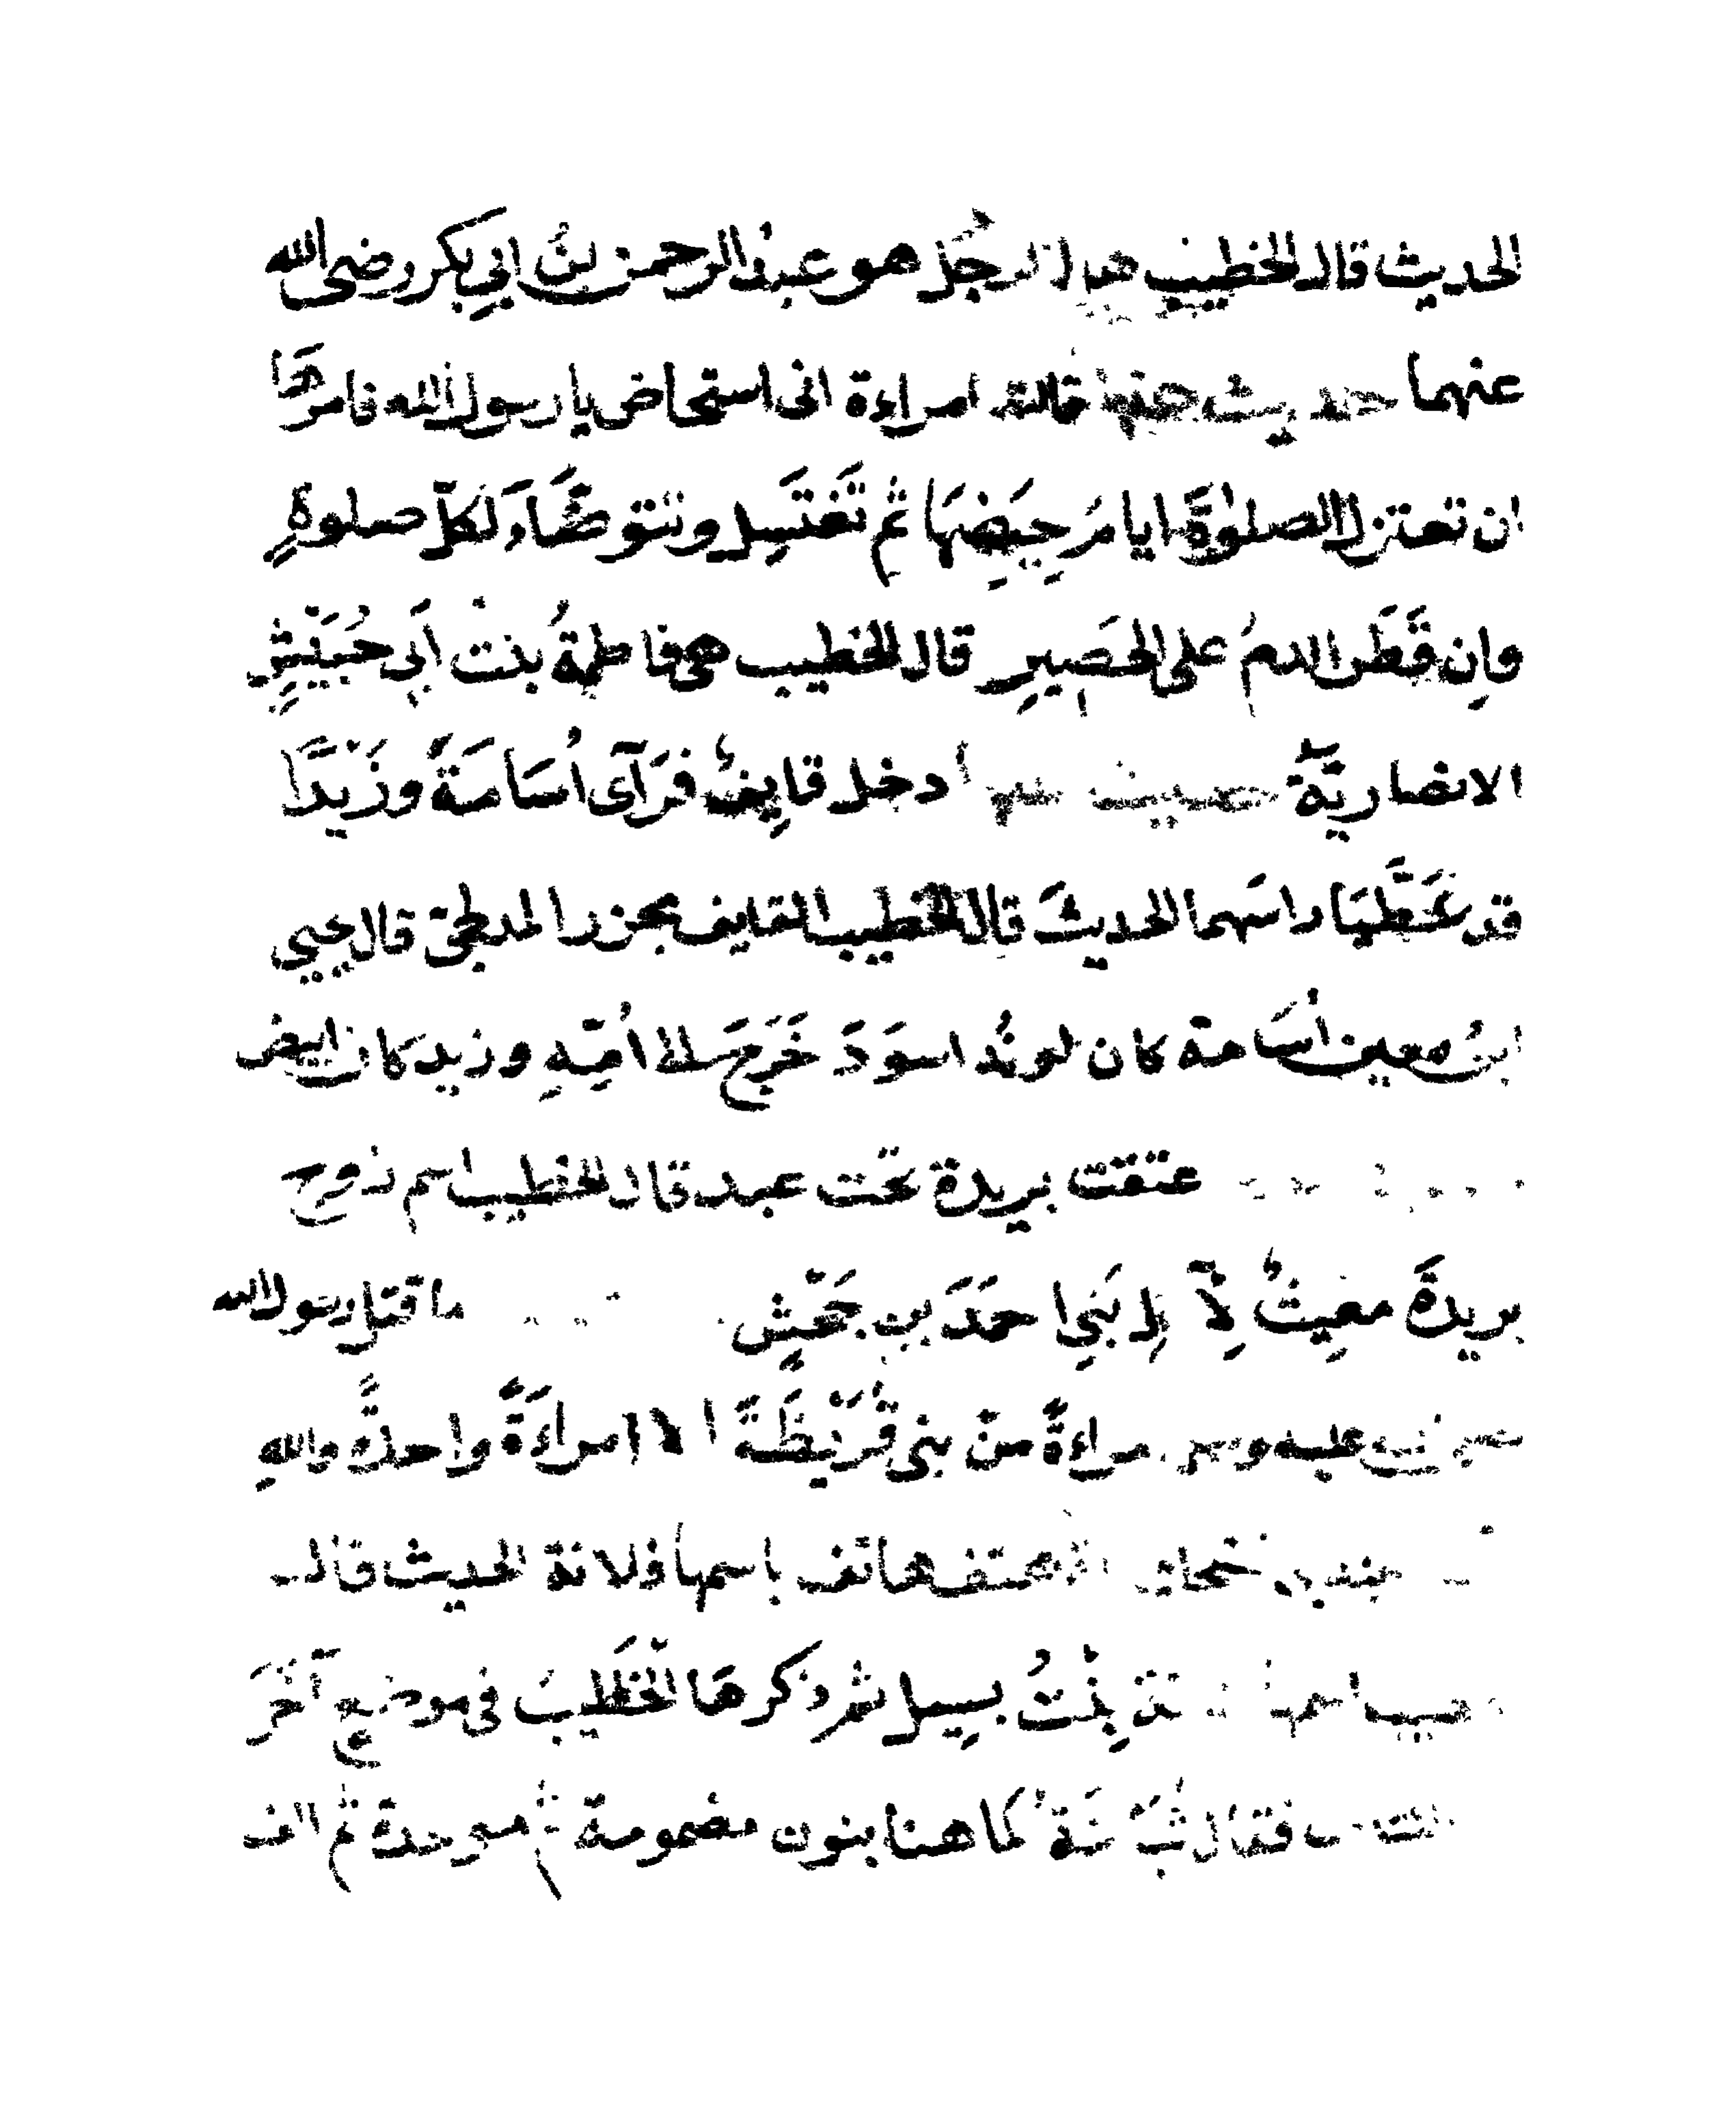 الحديث قال الخطيب هذا الرجُل هو عبدُ الرحمن بنُ ابي بكر رضى الله
عنهما حديث قالت امراءة انى استحاض يا رسول الله فامرهَا
ان تعتزل الصلوٰةَ ايامَ حِيَضِهَا ثم تَغتَسِل وتتوضَّاءَ لكلّ صلوةٍ
وان قَطَر الدمُ على الحَصِيرِ قال الخطيب هى فاطمةُ بنت أبي حُبَيْشٍ
الانصاريّة دخل قايِفٌ فرَآى اُسَامَةَ وزَيْدًا
قد غَطَّيَا راسَهما الحديثَ قال الخطيب القايف مجزر المدلجىّ قال يحيي
ابنُ معين أسَامة كان لونُه اسوَدَ خَرَجَ الى اُمِّهِ وزيد كان ابيض
عتقت بريدة تحت عبد قال الخطيب اسم زوج
بريدةَ مغيثٌ لِآلِ بَنِي احمَدَ بن جَحْشٍ ما قتل رسول الله
عليه امراءةً منْ بنى قُرَيْظَةَ الا امراءَةً واحدةً والله
هتف هاتف باسمها فلانة الحديث قال
اسمها بِنْتُ ثم ذكرها الخَطِيبَ فى موضعٍ آخَرَ
فقال كما هنا بنون مضمومة ثم موحدة ثم الف